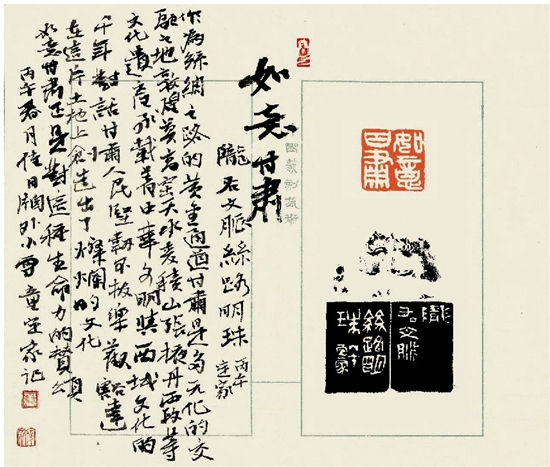 如意甘肅
隴右文脈
絲路明
珠
如意甘肃
隴右文脈絲路明珠 丙午
作为絲綢之路的黄金通道甘肃是多元化的交
融之地敦煌莫高窟天水麦積山張掖丹霞等
文化遺産承載着中華文明與西域文化的
千年對話甘肃人民堅韌不拔樂觀豁達
在這片土地上創造出了燦爛的文化
如意甘肃正是對這種生命力的贊頌
丙午春月 日窗外小雪童定家记